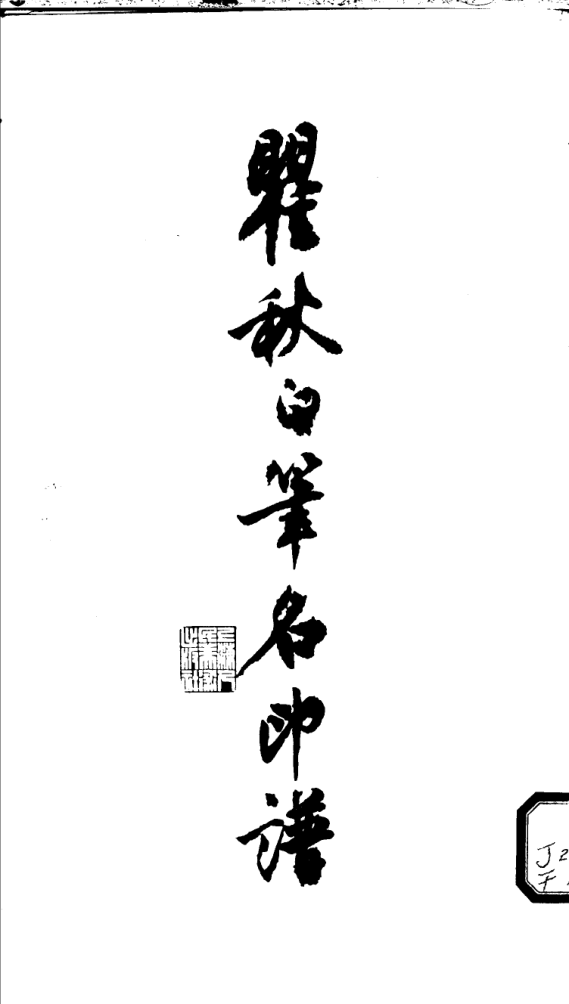 瞿秋白筆名印譜
J2